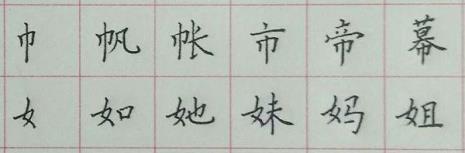 巾 帆 帐 市 帝 幕
女 如 她 妹 妈 姐